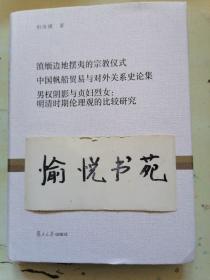 田汝康 著
滇缅边地摆夷的宗教仪式
中国帆船贸易与对外关系史论集
男权阴影与贞妇烈女：
明清时期伦理观的比较研究
愉悦书苑
复旦大学出版社